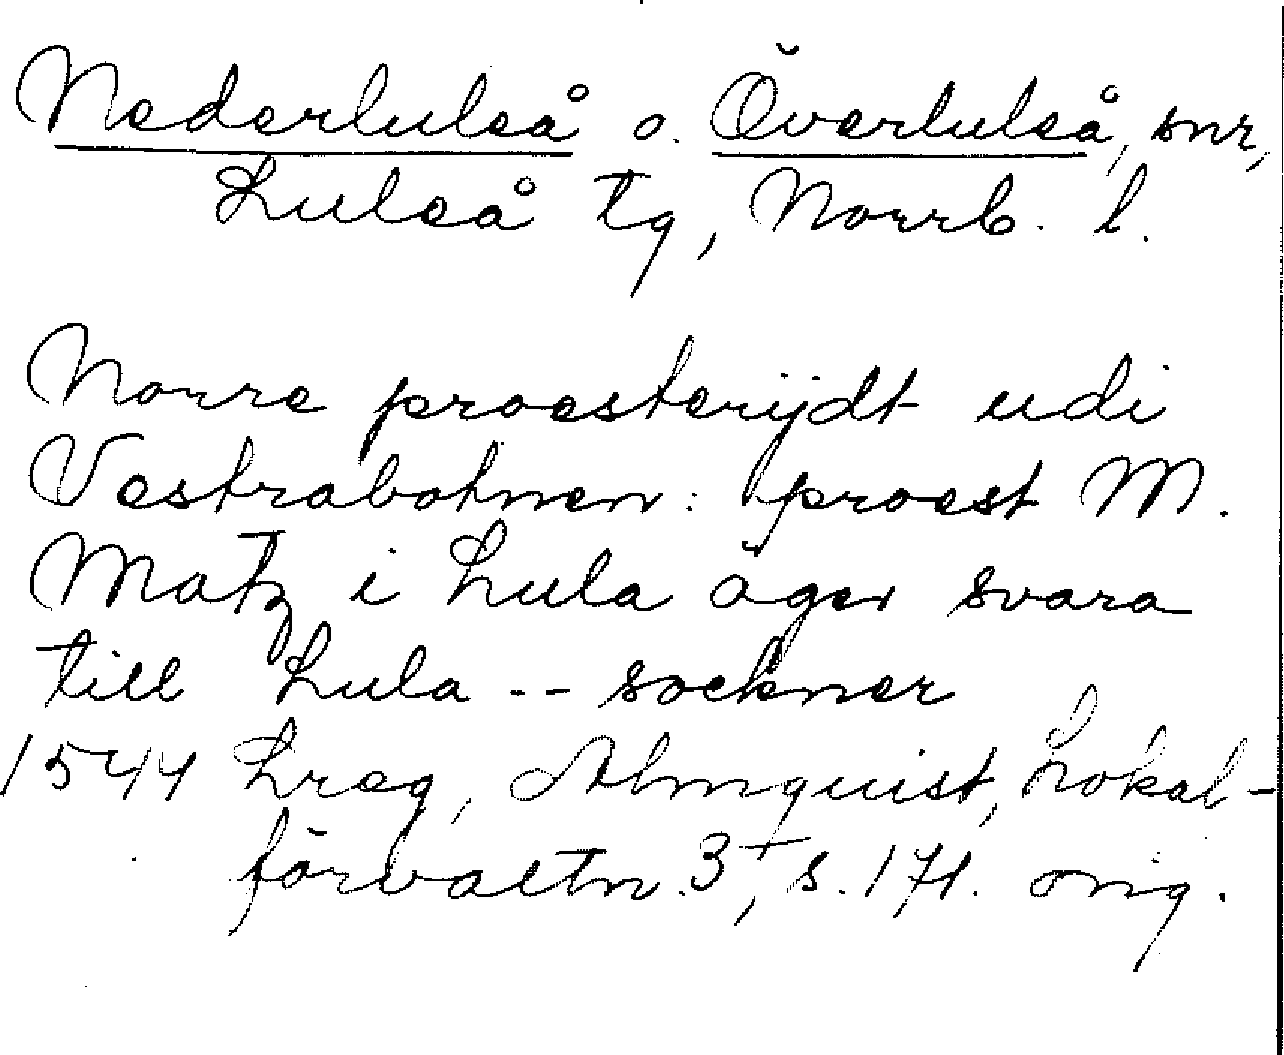 Nederluleå o. Överluleå, snr,
Luleå tg, Norrb. l.
Norre proesterijdt udi
Vestrabotnen: proest M.
Matz i Lula äger svara
till Lula -- sockner
1544 Lreg, Almquist, Lokal-
förvaltn. 3, s. 171. orig.